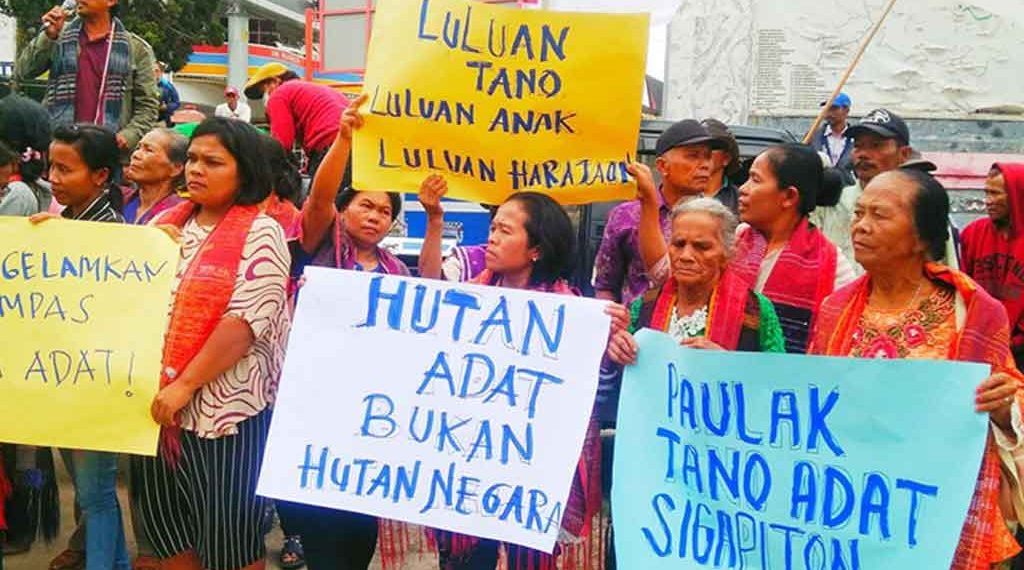 LULUAN
TANO
LULUAN ANAK
LULUAN HARAJAON
GELAMKAN
MPAS
ADAT!
HUTAN
ADAT
BUKAN
HUTAN NEGARA
PAULAK
TANO ADAT
SIGAPITON